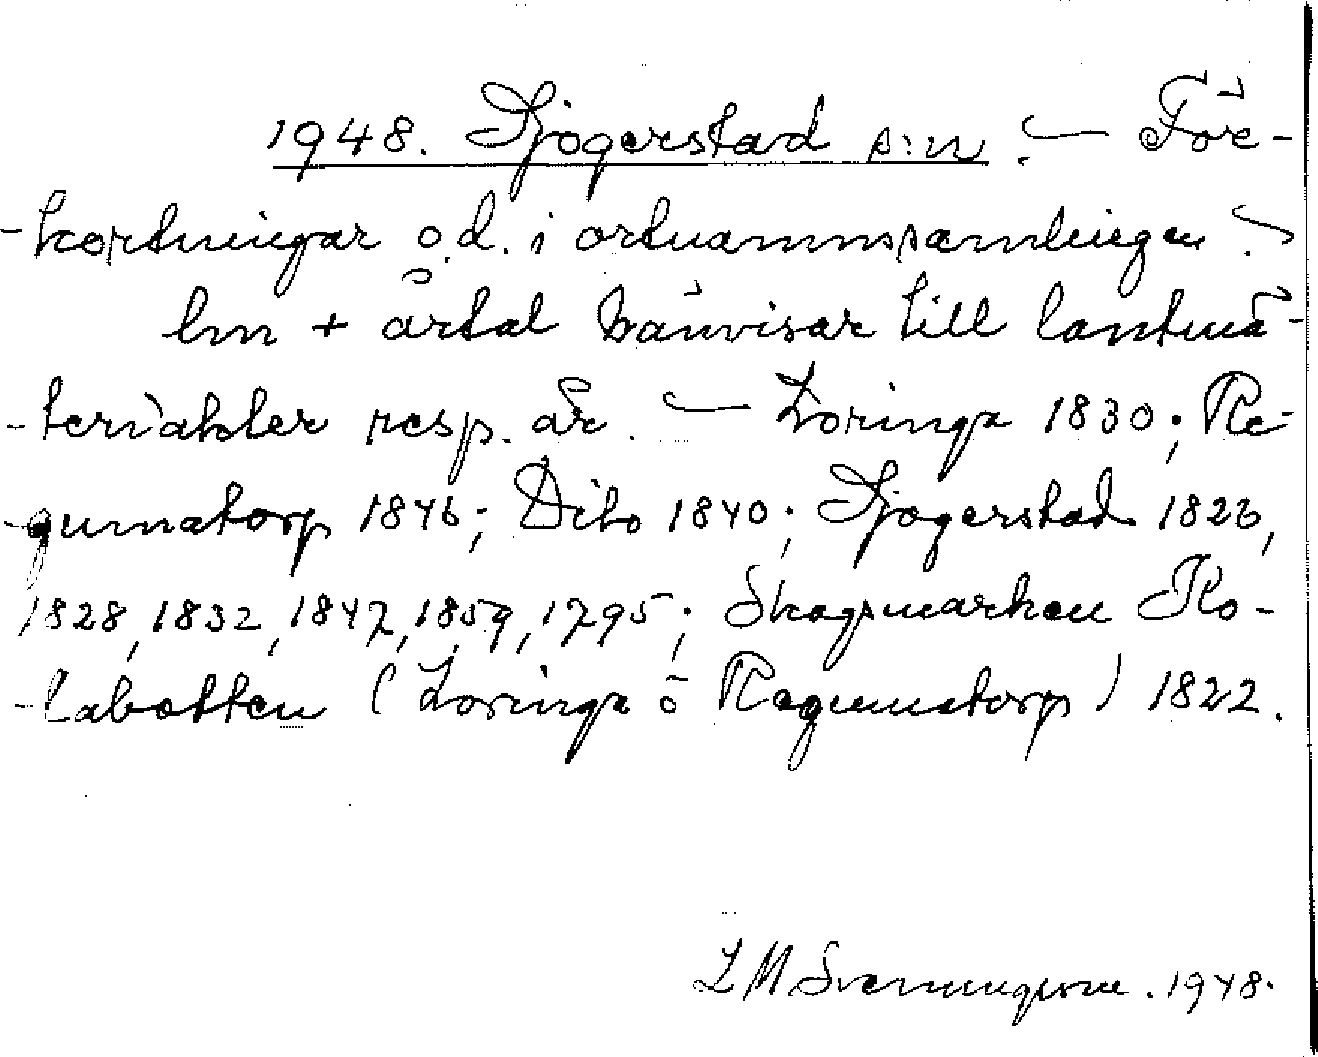 1948. Sjogerstad s:n. — För-
-kortningar o.d. i ortnammssamlingen :
lm + årtal hänvisar till lantmä-
-teriakter resp. år. — Loringa 1830; Re-
-gumatorp 1846; Dito 1840; Sjogerstad 1823,
1828, 1832, 1847, 1859, 1795; Skogsmarken Ko-
-labotten (Loringa o Regumatorp) 1822.
L M Svenungsson. 1948.